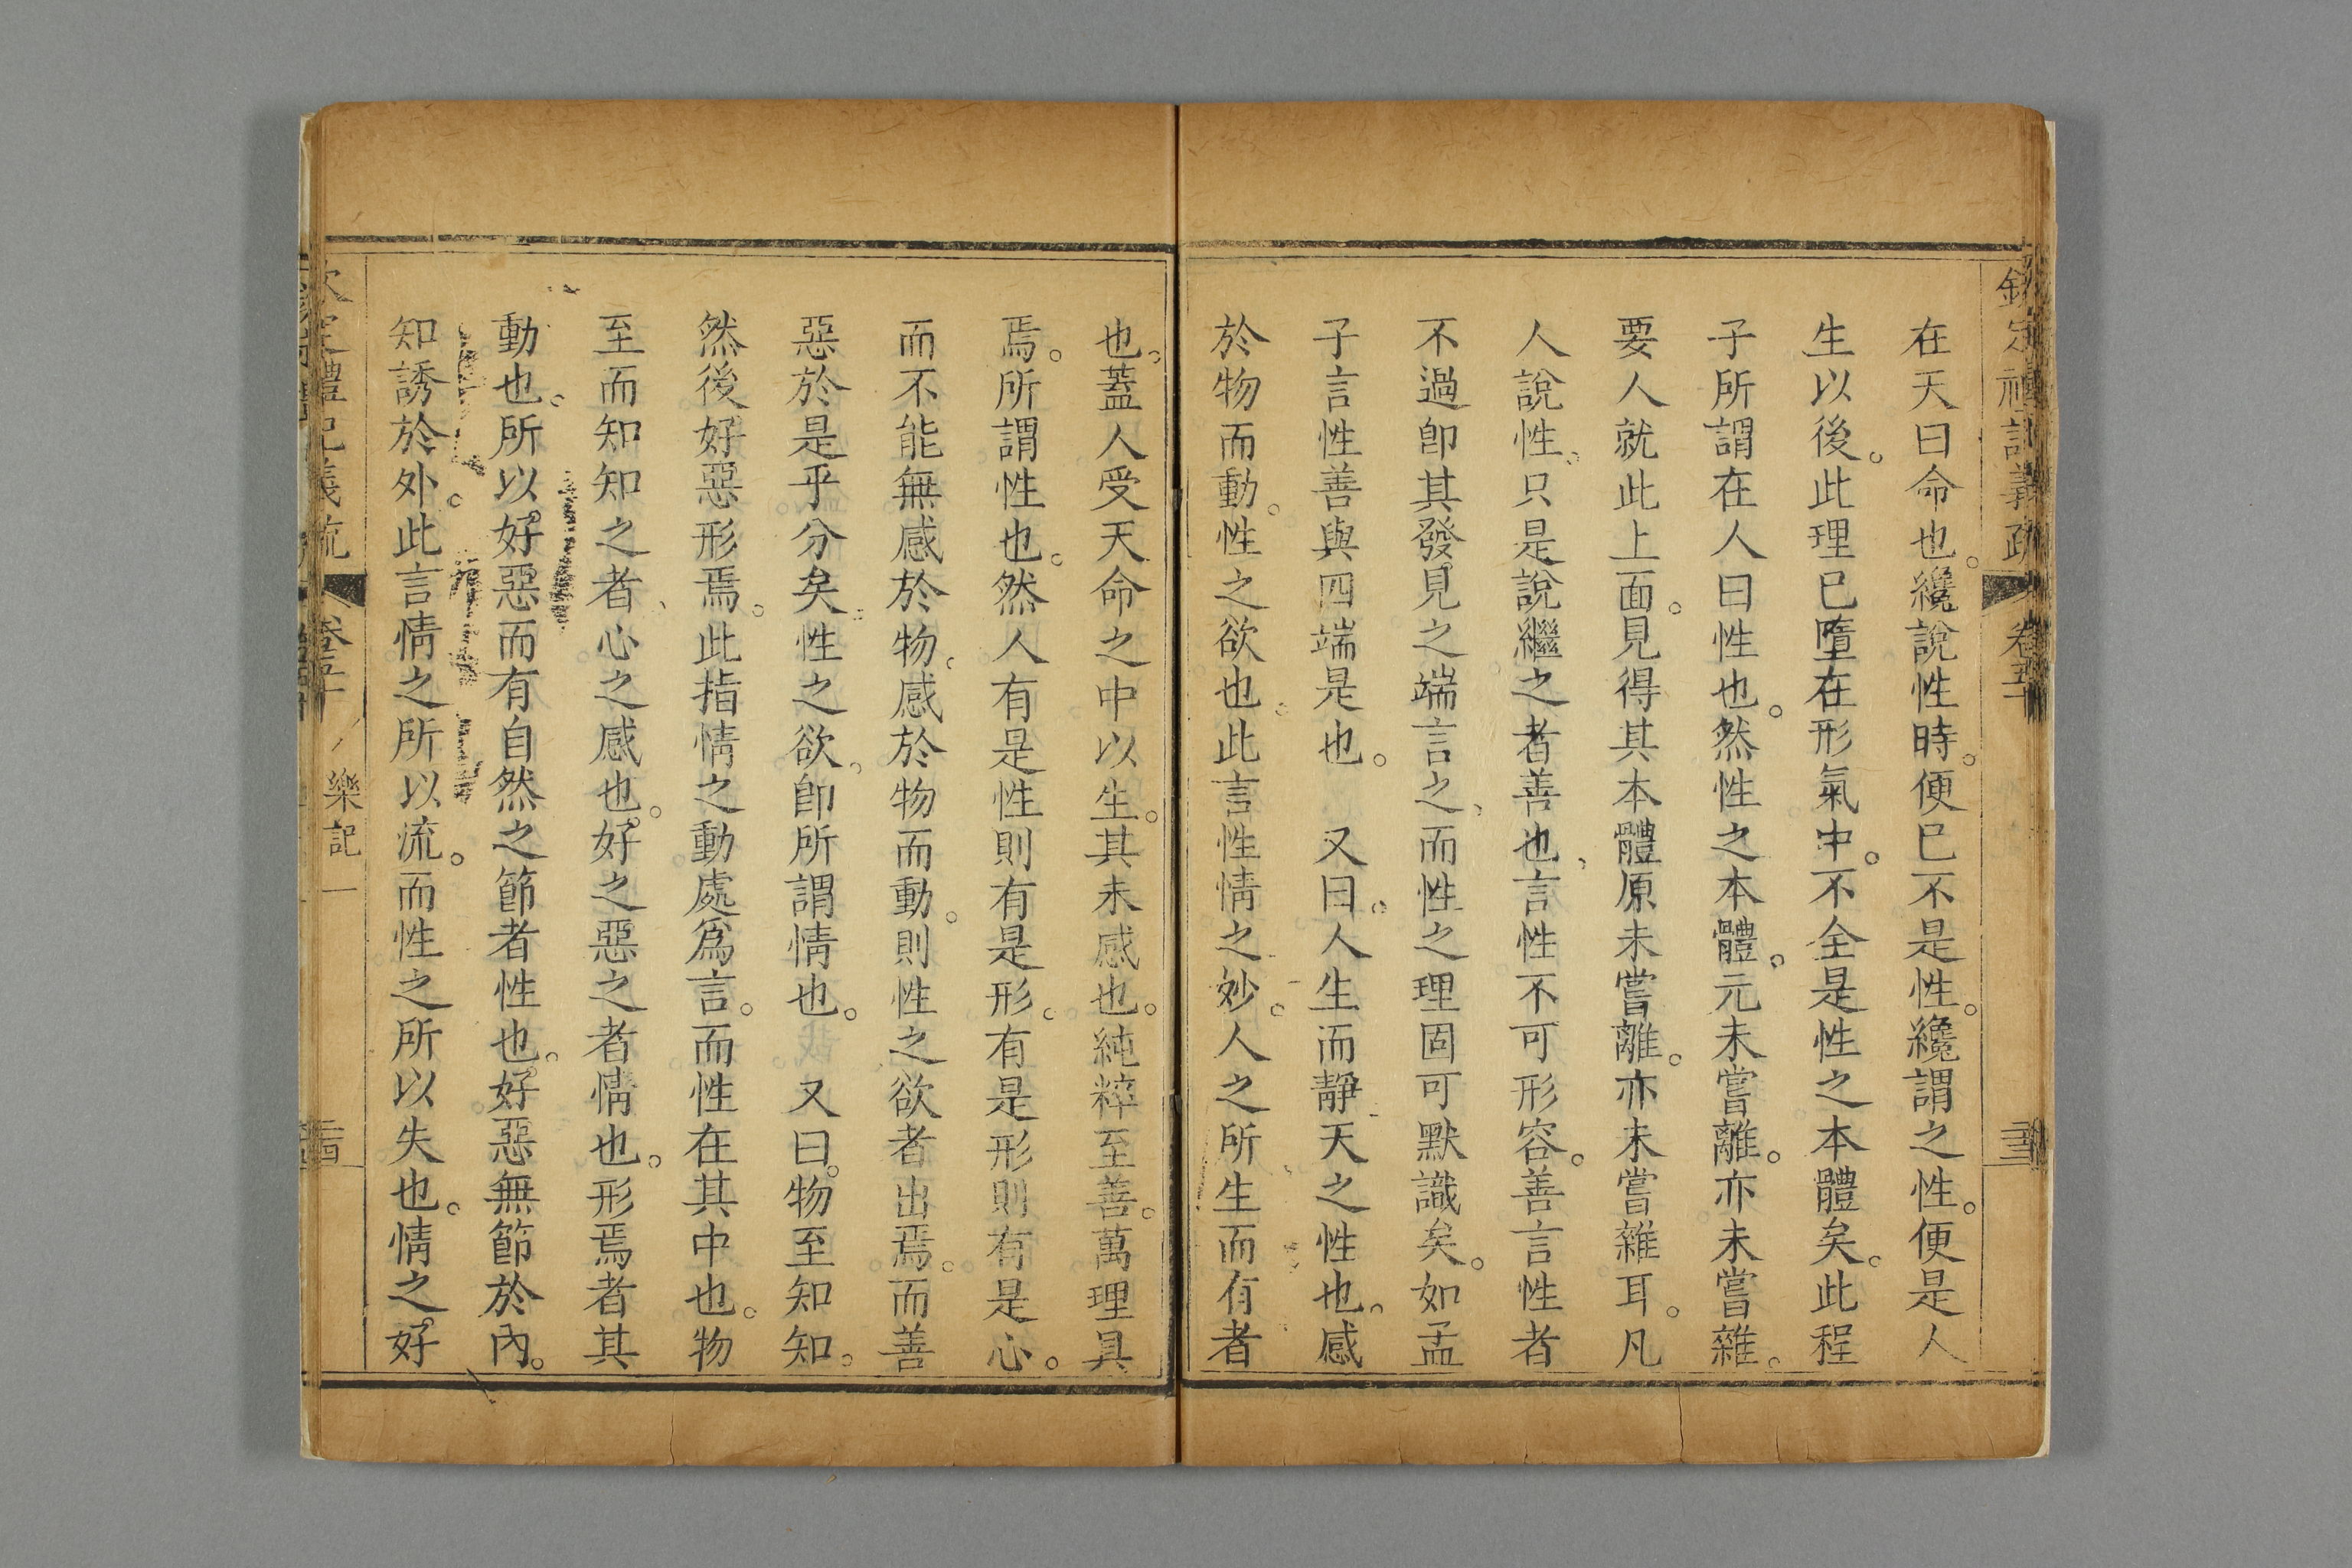 欽定禮記義疏 卷五十
在天曰命也。纔說性時。便已不是性。纔謂之性。便是人
生以後。此理已墮在形氣中。不全是性之本體矣。此程
子所謂在人曰性也。然性之本體。元未嘗離。亦未嘗雜。
要人就此上面。見得其本體原未嘗離。亦未嘗雜耳。凡
人說性、只是說繼之者善也、言性不可形容。善言性者
不過卽其發見之端言之、而性之理固可默識矣。如孟
子言性善與四端是也。 又曰。人生而靜天之性也。感
於物而動。性之欲也。此言性情之妙。人之所生而有者
也。蓋人受天命之中以生。其未感也。純粹至善。萬理具
焉。所謂性也。然人有是性則有是形。有是形則有是心。
而不能無感於物。感於物而動。則性之欲者出焉。而善
惡於是乎分矣。性之欲、卽所謂情也。 又曰。物至知知。
然後好惡形焉。此指情之動處爲言。而性在其中也。物
至而知知之者、心之感也。好之惡之者情也。形焉者其
動也。所以好惡而有自然之節者性也。好惡無節於內。
知誘於外。此言情之所以流。而性之所以失也。情之好
欽定禮記義疏 卷五十 樂記一